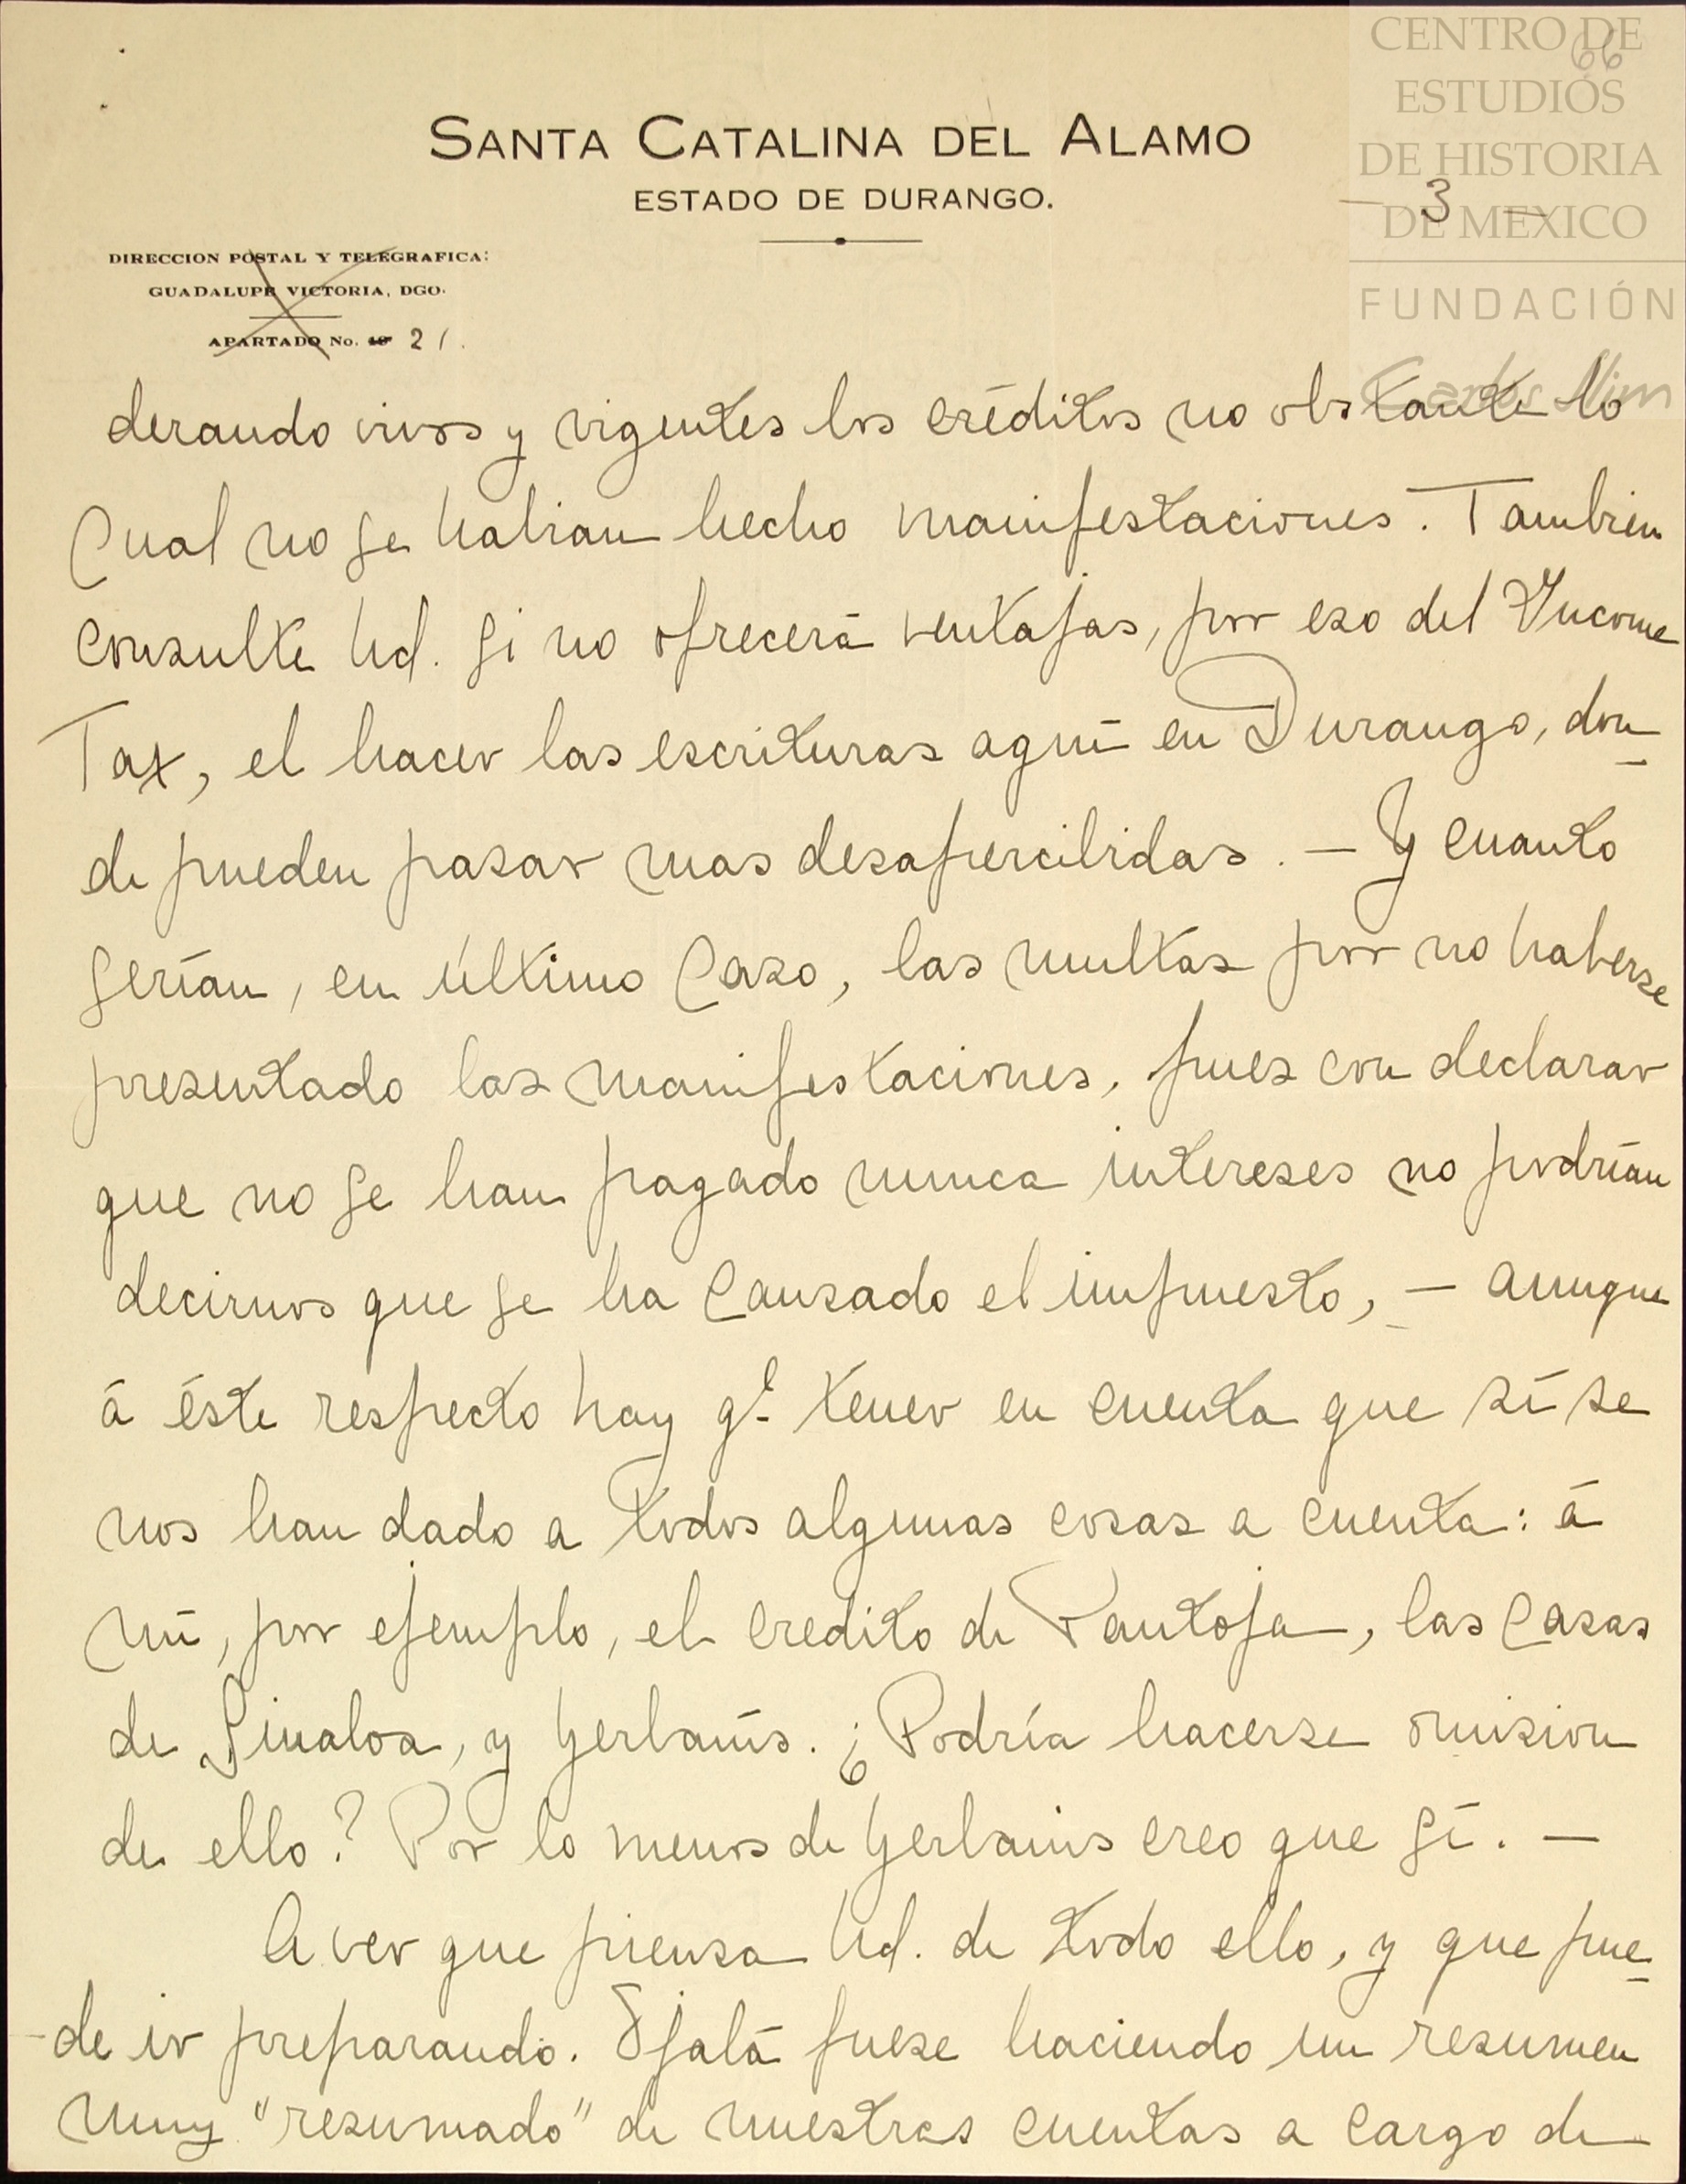 CENTRO DE
ESTUDIOS
DE HISTORIA
DE MEXICO
FUNDACIÓN
Carlos Slim
66
SANTA CATALINA DEL ALAMO
ESTADO DE DURANGO.
- 3 -
DIRECCION POSTAL Y TELEGRAFICA:
GUADALUPE VICTORIA, DGO.
APARTADO No. 21.
derando vivos y vigentes los créditos no obstante lo
cual no se habian hecho manifestaciones. Tambien
consulte Ud. si no ofrecerá ventajas, por eso del Yncome
Tax, el hacer las escrituras aquí en Durango, don-
de pueden pasar mas desapercibidas. — Y cuanto
serían, en último caso, las multas por no haberse
presentado las manifestaciones, pues con declarar
que no se han pagado nunca intereses no podrían
decirnos que se ha causado el impuesto, — aunque
á éste respecto hay qe. tener en cuenta que sí se
nos han dado a todos algunas cosas a cuenta: á
mí, por ejemplo, el credito de Pantoja, las casas
de Sinaloa, y Yerbanís. ¿Podría hacerse omision
de ello? Por lo menos de Yerbanis creo que sí. —
A ver que piensa Ud. de todo ello, y que pue-
de ir preparando. Ojalá fuese haciendo un resumen
muy "resumado" de nuestras cuentas a cargo de